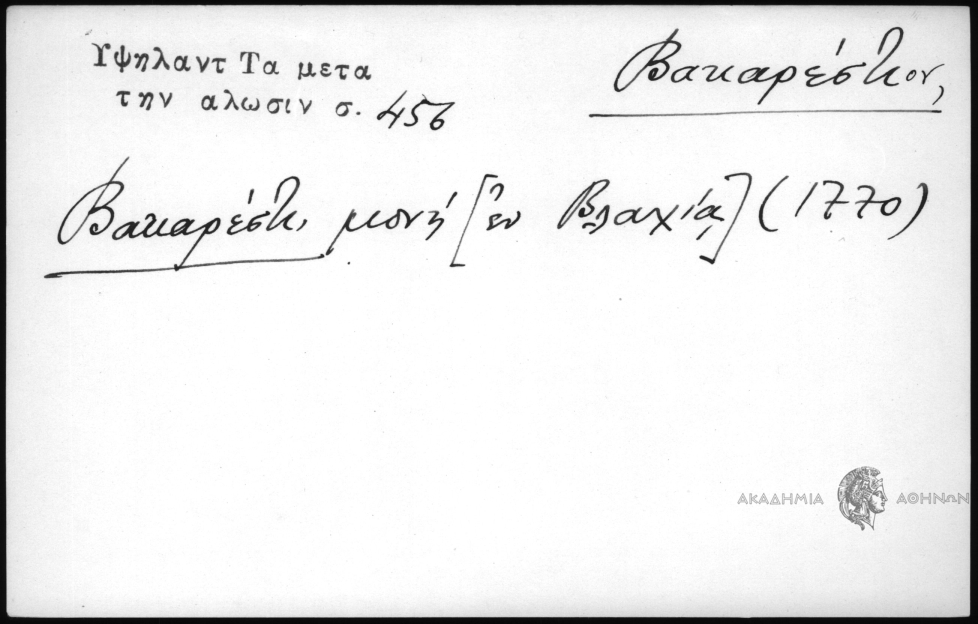 Υψηλαντ Τα μετα
την αλωσιν σ. 456
Βακαρέστιον,
Βακαρέστι, μονή [ἐν Βλαχίᾳ] (1770)
ΑΚΑΔΗΜΙΑ ΑΘΗΝΩΝ